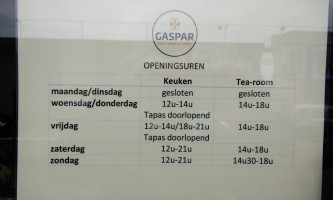 GASPAR
OPENINGSUREN
Keuken Tea-room
maandag/dinsdag gesloten gesloten
woensdag/donderdag 12u-14u 14u-18u
Tapas doorlopend
vrijdag 12u-14u/18u-21u 14u-18u
Tapas doorlopend
zaterdag 12u-21u 14u-18u
zondag 12u-21u 14u30-18u